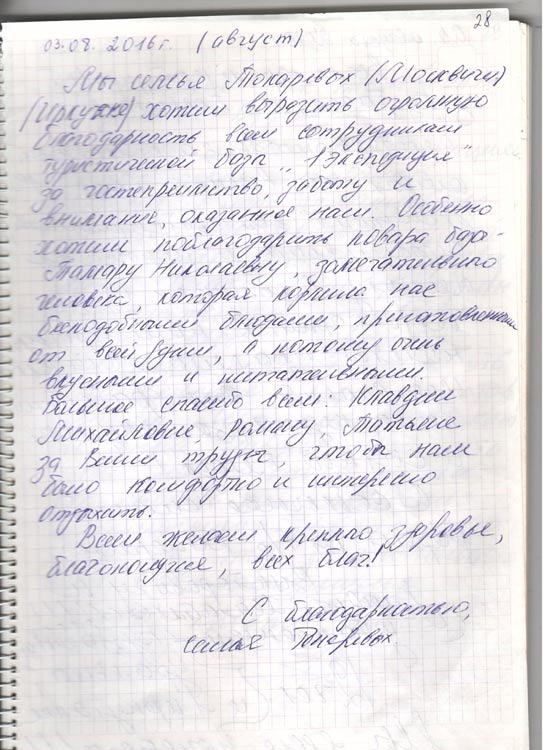 28
03.08.2016г. (август)
Мы семья Токаревых (Москвичи)
(Иркутск) хотим выразить огромную
благодарность всем сотрудникам
туристической базы „1 Экспедиция"
за гостеприимство, заботу и
внимание, оказанное нам. Особенно
хотим поблагодарить повара базы-
Тамару Николаевну, замечательного
человека, которая кормила нас
бесподобными блюдами, приготовленными
от всей души, а потому очень
вкусными и питательными.
Большое спасибо всем: Клавдии
Михайловне, Роману, Татьяне
за Ваши труды, чтобы нам
было комфортно и интересно
отдыхать.
Всем желаем крепкого здоровья,
благополучия, всех благ!
С благодарностью,
семья Токаревых.